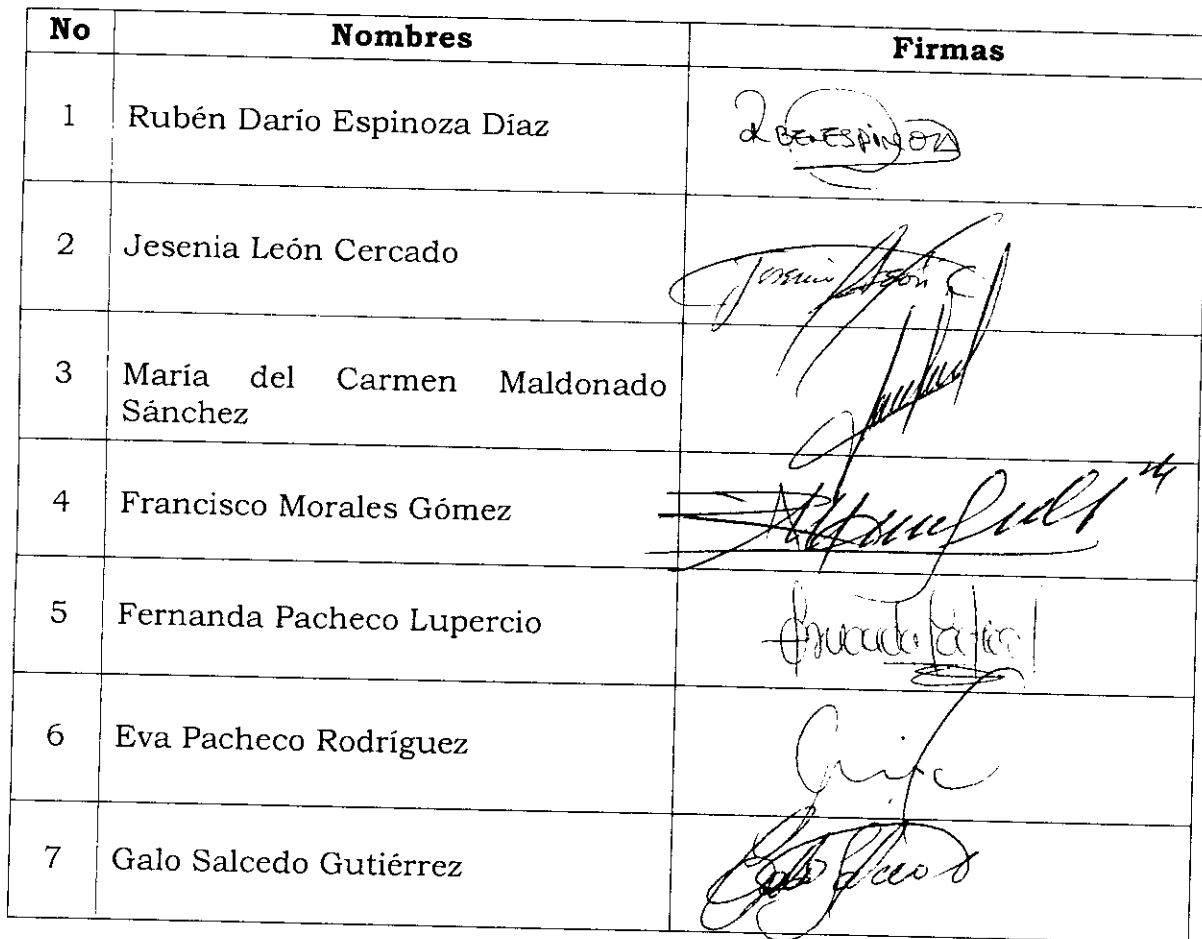 No Nombres Firmas
1 Rubén Darío Espinoza Díaz
2 Jesenia León Cercado Jesenia León C
3 María del Carmen Maldonado
Sánchez
4 Francisco Morales Gómez
5 Fernanda Pacheco Lupercio
6 Eva Pacheco Rodríguez
7 Galo Salcedo Gutiérrez